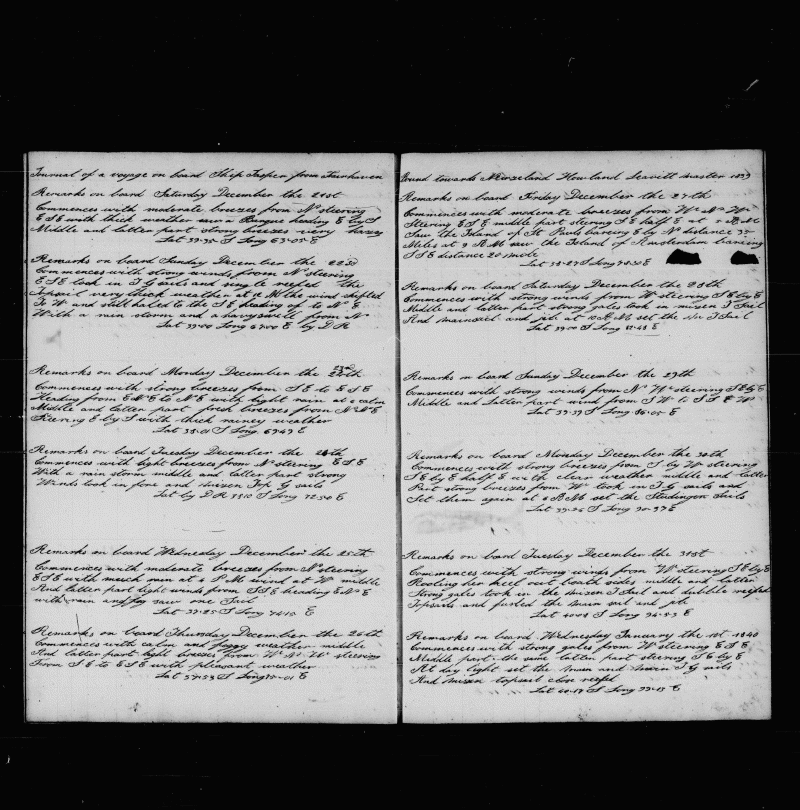 Journal of a voyage on board Ship Jasper from Fairhaven
Remarks on board Saturday December the 21st
Commences with moderate breezes from N steering
E S E with thick weather saw a Barque heading E by S
Middle and latter part strong breezes very hazey
Lat 39-35 S Long 63-05 E
Remarks on board Sunday December the 22nd
Commences with strong winds from N steering
E S E took in T G sails and single reefed the
Topsails very thick weather at 12 M the wind shifted
To W and still haled to the S E heading up to N E
With a rain storm and a havy swell from N
Lat 39-00 Long 67-00 E by D R
Remarks on board Monday December the 23rd
Commences with strong breezes from S E to E S E
Heading from E N E to N E with light rain at 6 calm
Middle and latter part fresh breezes from N N E
Steering E by S with thick rainey weather
Lat 38-01 S Long 69-49 E
Remarks on board Tuesday December the 24th
Commences with light breezes from N steering E S E
With a rain storm middle and latter part strong
Winds took in fore and mizen Top G sails
Lat by D R 38-10 S Long 72-50 E
Remarks on board Wedneday December the 25th
Commences with moderate breezes from N steering
E S E with much rain at 4 P M wind at W middle
And latter part light winds from S S E heading E N E
with rain and fog saw one Sail
Lat 39-25 S Long 74-10 E
Remarks on board Thursday December the 26th
Commences with calm and foggy weather middle
And latter part light breezes from W N W steering
From S E to E S E with pleasant weather
Lat 37-53 S Long 75-01 E
Bound towards Newzeland Howland Leavitt master 1839
Remarks on board Friday December the 27th
Commences with moderate breezes from W N W
Steering E S E middle part steering S E half E at
Saw the Island of St Pauls baring E by N distance 35
Miles at 9 A M saw the Island of Amsterdam baring
S S E distance 20 mile
Lat 38-27 S Long 78-30 E
Remarks on board Saturday December the 28th
Commences with strong winds from W steering S E by E
Middle and latter part strong gales took in mizen T Sail
And mainsail and jib at 10 A M set the Mn T Sail
Lat 39-00 S Long 82-48 E
Remarks on board Sunday December the 29th
Commences with strong winds from N W steering S E by E
Middle and Latter part wind from S W to S S W
Lat 39-39 S Long 86-05 E
Remarks on board Monday December the 30th
Commences with strong breezes from S by W steering
S E by E half E with clear weather middle and latter
Part strong breezes from W took in T G sails and
Set them again at 8 A M set the Studingon Sails
Lat 39-36 S Long 90-37 E
Remarks on board Tuesday December the 31st
Commences with strong winds from W steering S E by E
Rooling her keel out boath sides middle and latter
Strong gales took in the mizen T Sail and dubble reefed
Topsails and furled the main sail and jib
Lat 40-08 S Long 94-53 E
Remarks on board Wednesday January the 1st 1840
Commences with strong gales from W steering E S E
Middle part the same latter part steering S E by E
At day light set the main and mizen T G sails
And mizen topsail close reefed
Lat 40-19 S Long 99-19 E